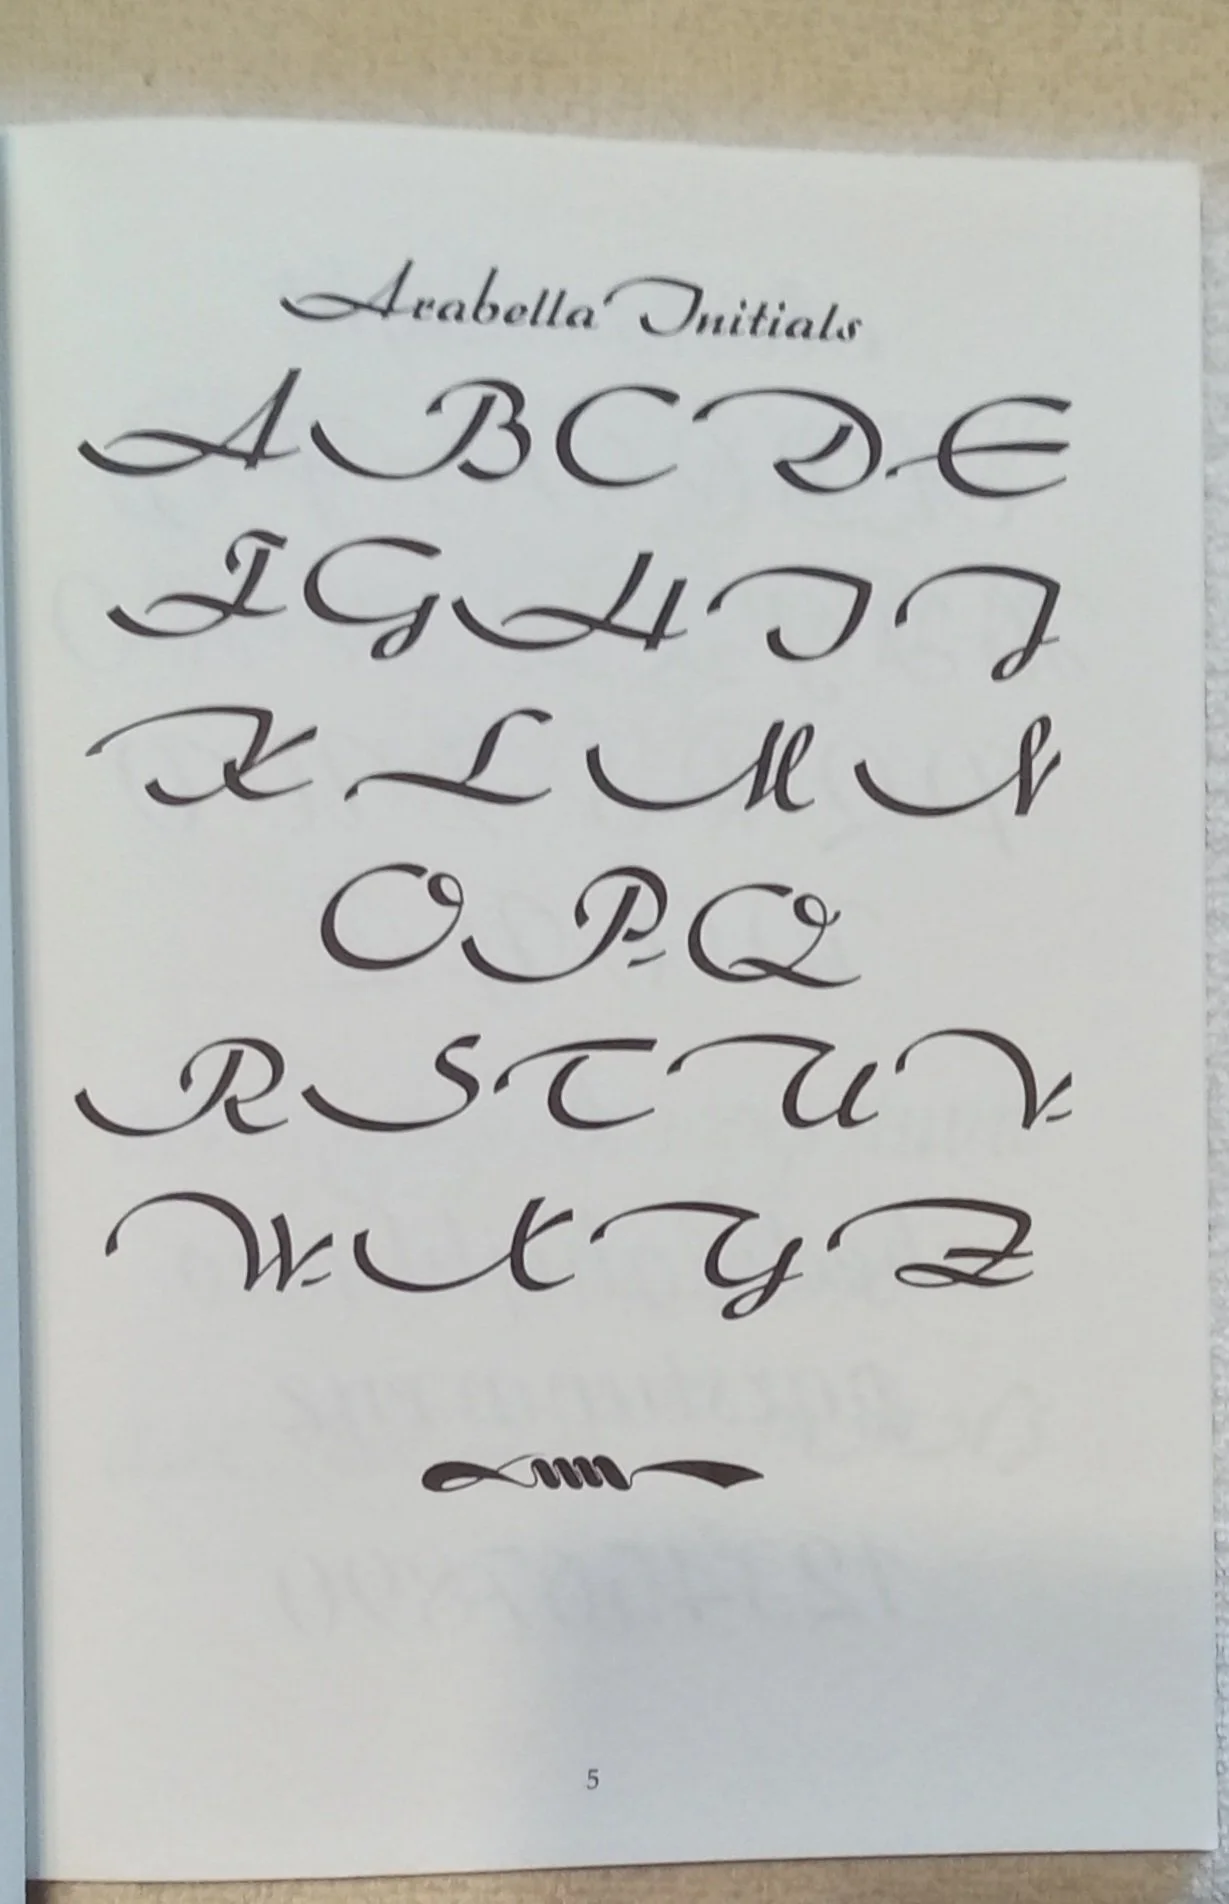 Arabella Initials
A B C D E
F G H I J
K L M N
O P Q
R S T U V
W X Y Z
5